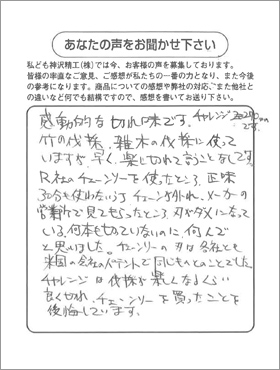 あなたの声をお聞かせ下さい
私ども神沢精工(株)では今、お客様の声を募集しております。
皆様の率直なご意見、ご感想が私たちの一番の力となり、また今後
の参考になります。商品についての感想や弊社の対応、また他社と
の違いなど何でも結構ですので、感想を書いてお送り下さい。
感動的な切れ味です。チャレンジ
です。
竹の伐採、雑木の伐採に使って
いますが早く、楽に切れて言うことなしです。
R社のチェーンソーを使ったところ、正味
30分も使わないうちチェーンが外れ、メーカーの
営業所で見てもらったところ、刃がダメになって
いる、何本も切っていないのに何んで
と思いました。チェンソーの刃は各社とも
米国の会社のパテントで同じものとのことでした。
チャレンジは伐採が楽しくなるくらい
良く切れ、チェーンソーを買ったことを
後悔しています。